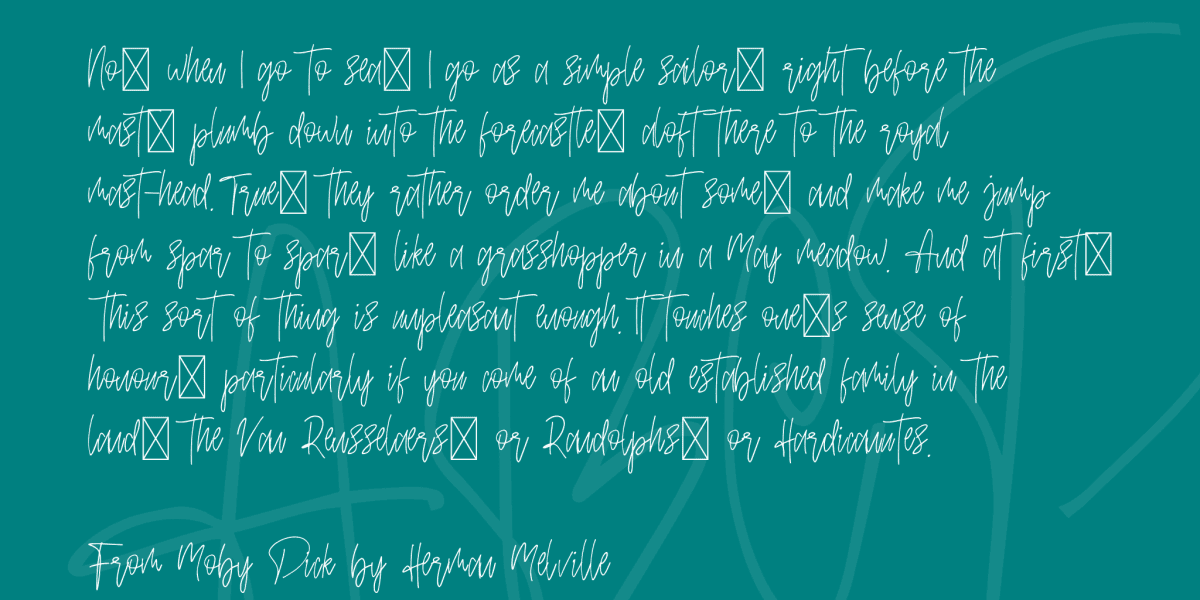 No☒ when I go to sea☒ I go as a simple sailor☒ right before the
mast☒ plumb down into the forecastle☒ aloft there to the royal
mast-head. True☒ they rather order me about some☒ and make me jump
from spar to spar☒ like a grasshopper in a May meadow. And at first☒
this sort of thing is unpleasant enough. It touches one☒s sense of
honour☒ particularly if you come of an old established family in the
land☒ the Van Rensselaers☒ or Randolphs☒ or Hardicanutes.
From Moby Dick by Herman Melville